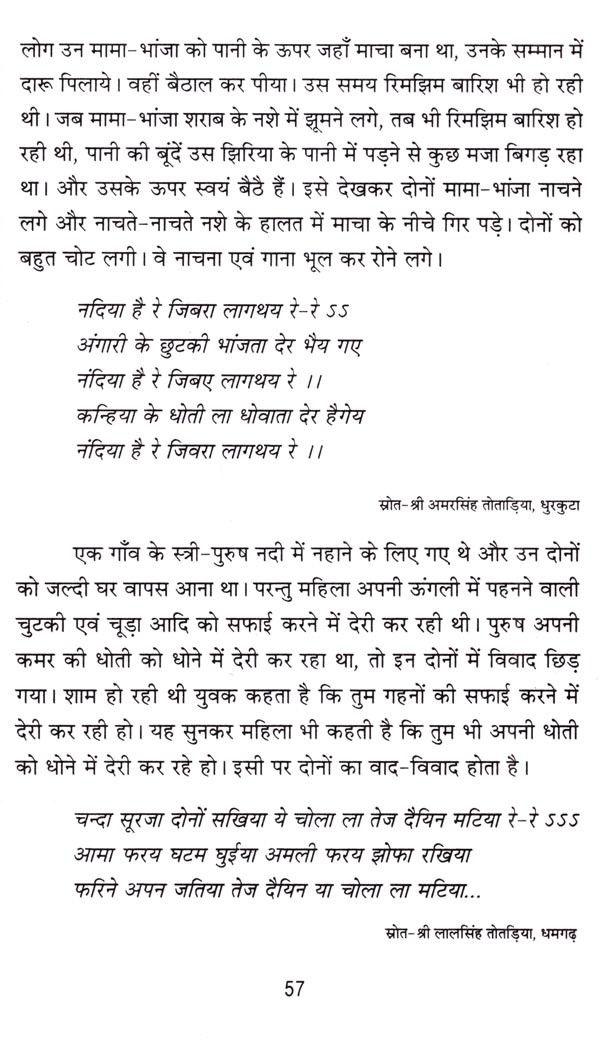 लोग उन मामा-भांजा को पानी के ऊपर जहाँ माचा बना था, उनके सम्मान में
दारू पिलाये। वहीं बैठाल कर पीया। उस समय रिमझिम बारिश भी हो रही
थी। जब मामा-भांजा शराब के नशे में झूमने लगे, तब भी रिमझिम बारिश हो
रही थी, पानी की बूंदें उस झिरिया के पानी में पड़ने से कुछ मजा बिगड़ रहा
था। और उसके ऊपर स्वयं बैठै हैं। इसे देखकर दोनों मामा-भांजा नाचने
लगे और नाचते-नाचते नशे के हालत में माचा के नीचे गिर पड़े। दोनों को
बहुत चोट लगी। वे नाचना एवं गाना भूल कर रोने लगे।
नदिया है रे जिबरा लागथय रे-रे ऽऽ
अंगारी के छुटकी भांजता देर भैय गए
नंदिया है रे जिबए लागथय रे ।।
कन्हिया के धोती ला धोवाता देर हैगेय
नंदिया है रे जिवरा लागथय रे ।।
स्रोत-श्री अमरसिंह तोताड़िया, धुरकुटा
एक गाँव के स्त्री-पुरुष नदी में नहाने के लिए गए थे और उन दोनों
को जल्दी घर वापस आना था। परन्तु महिला अपनी ऊंगली में पहनने वाली
चुटकी एवं चूड़ा आदि को सफाई करने में देरी कर रही थी। पुरुष अपनी
कमर की धोती को धोने में देरी कर रहा था, तो इन दोनों में विवाद छिड़
गया। शाम हो रही थी युवक कहता है कि तुम गहनों की सफाई करने में
देरी कर रही हो। यह सुनकर महिला भी कहती है कि तुम भी अपनी धोती
को धोने में देरी कर रहे हो। इसी पर दोनों का वाद-विवाद होता है।
चन्दा सूरजा दोनों सखिया ये चोला ला तेज दैयिन मटिया रे-रे ऽऽऽ
आमा फरय घटम घुईया अमली फरय झोफा रखिया
फरिने अपन जतिया तेज दैयिन या चोला ला मटिया...
स्रोत-श्री लालसिंह तोतड़िया, धमगढ़
57